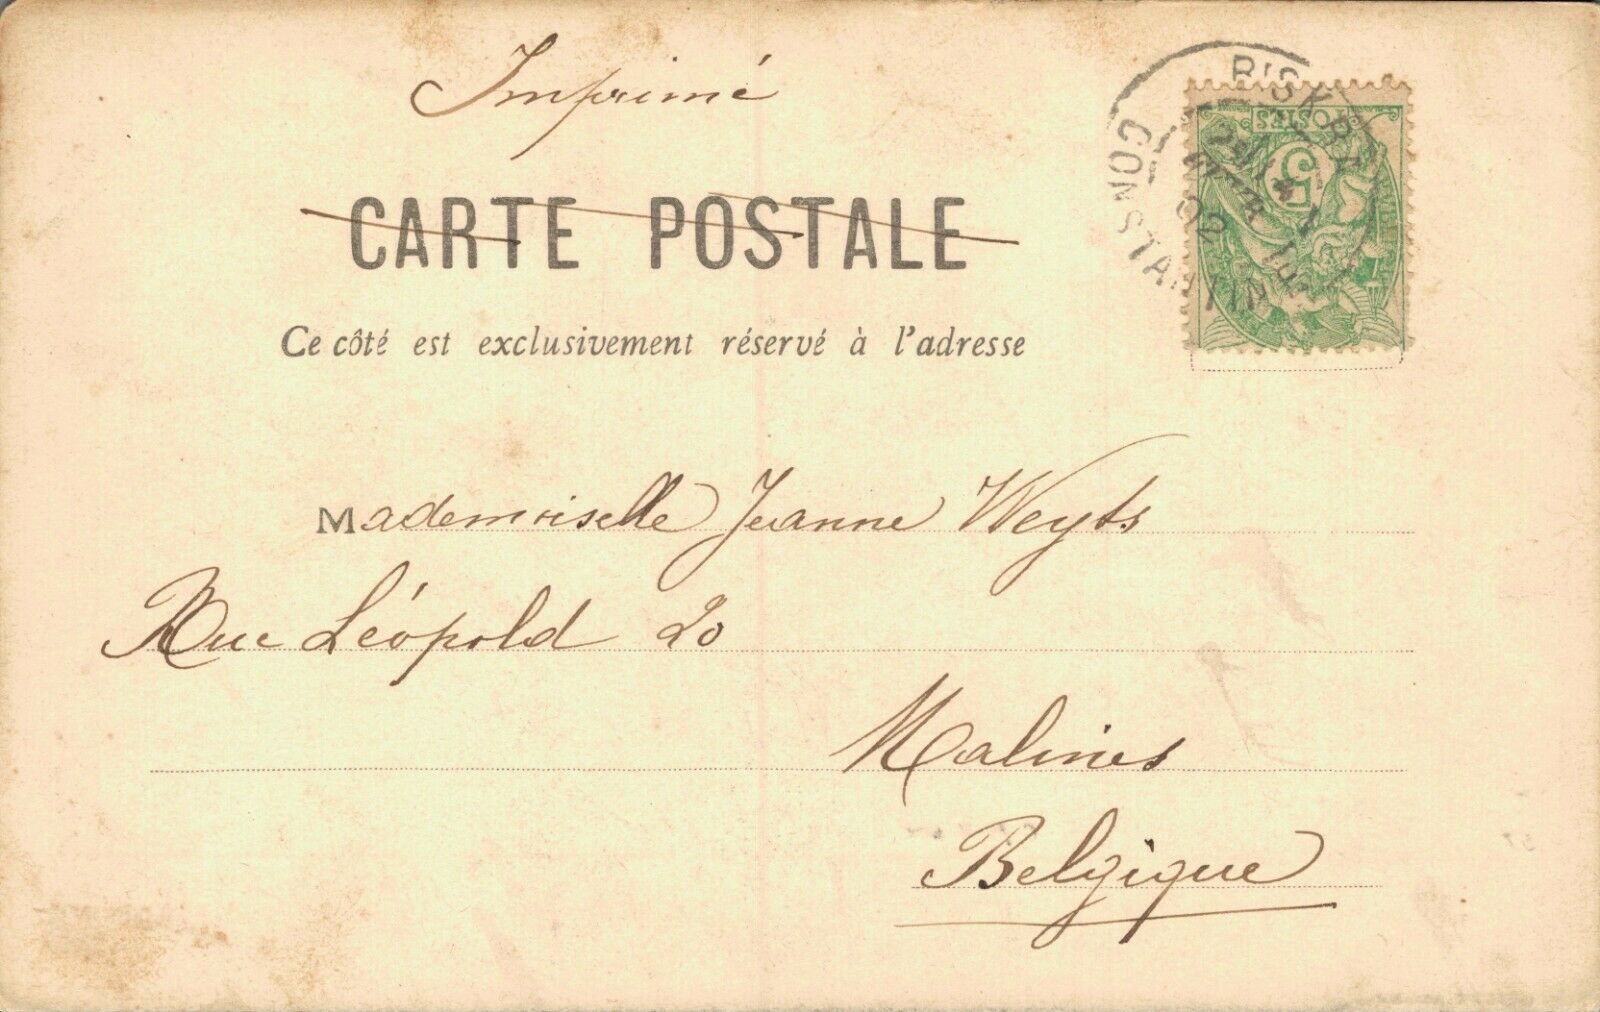 Imprimé
BISKRA
CONSTANTINE
02
POSTES
5
CARTE POSTALE
Ce côté est exclusivement réservé à l'adresse
Mademoiselle Jeanne Weyts
Rue Léopold 20
Malines
Belgique